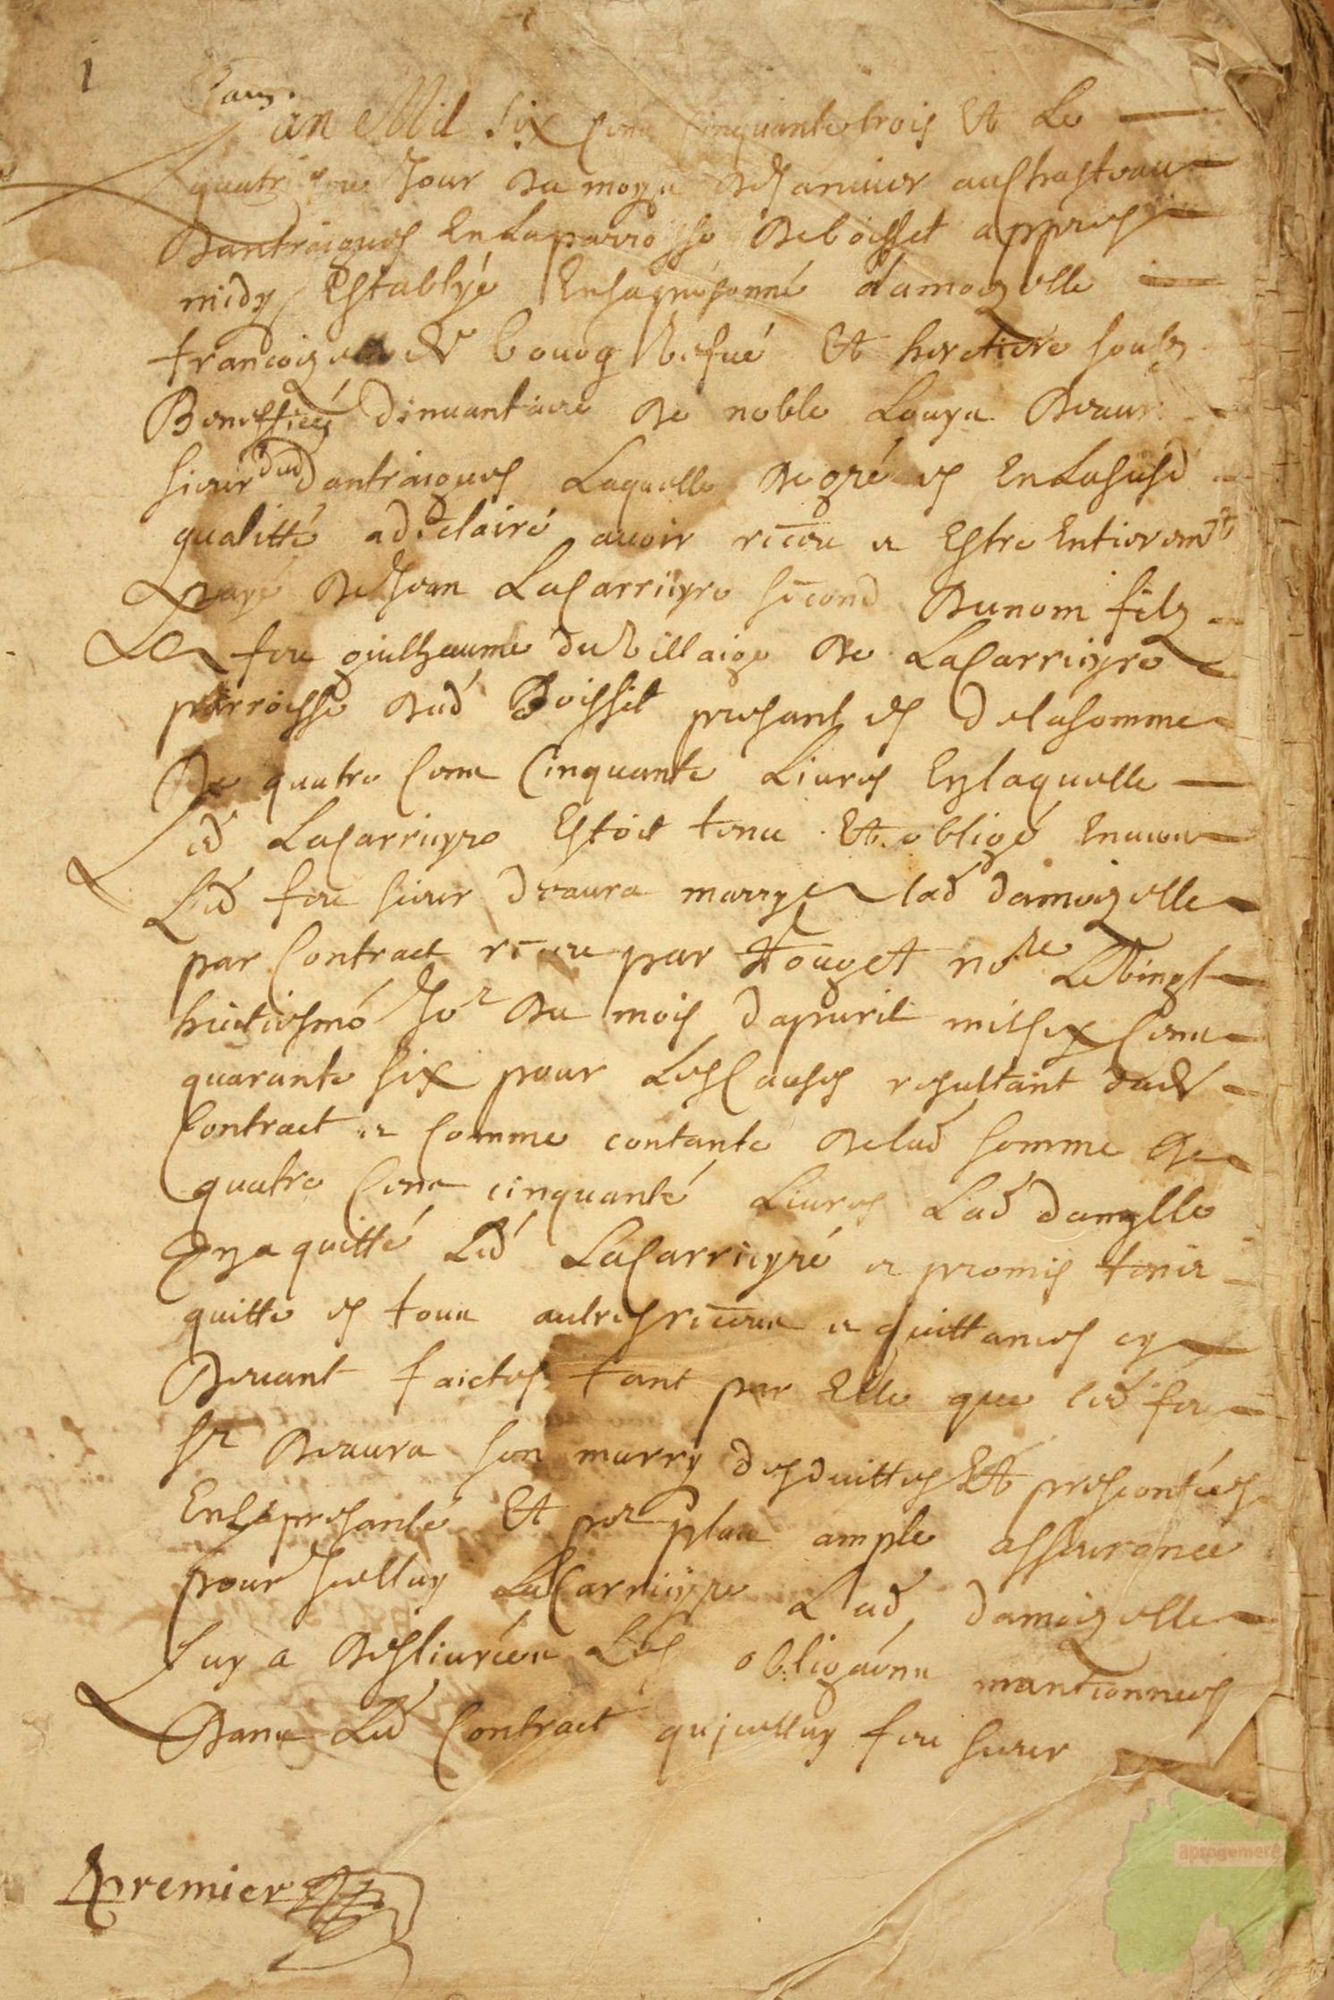 1
Lan
Lan Mil six cens cinquante trois Et Le
quatriesme Jour du moys de Januier au Chasteau
Dantraigues En La parroisse de boisset appres
midy Establye En sa personne damoizelle
francoize de Vefue Et heretiere soubz
Beneffice dinuantaire de noble Louys Deaura
sieur dud dantraigues Laquelle de gré es En La susd
qualitté a declairé auoir receu et Estre Entierem^t
payé de Jean LaCarrieyre second du nom filz
De feu guilhaume du Villaige de LaCarrieyre
parroisse dud Boisset presant es de la somme
De quatre cens Cinquante Liures En laquelle
Led LaCarrieyre Estoit tenu Et obligé Enuers
Led feu sieur deaura marry De lad damoizelle
par Contract receu par no^re Le Vingt
huictiesme Jo^r du mois dapuril mil six cens
quarante six pour Les Causes resultant dud
Contract et comme contante de lad somme de
quatre cens cinquante Liures Lad dam^lle
En a quitté Led LaCarrieyre et promis tenir
quitte es tous autres receus et quittances cy
Deuant faictes tant par Elle que led feu
S^r Deaura son marry desduittes Et prescontées
En La presante Et po^r plus ample asseurance
pour Jcelluy LaCarrieyre Lad damoizelle
Luy a desliurées Les obligaons mantionnees
Dans Led Contract qu jcelluy feu sieur
premier
aprogemere